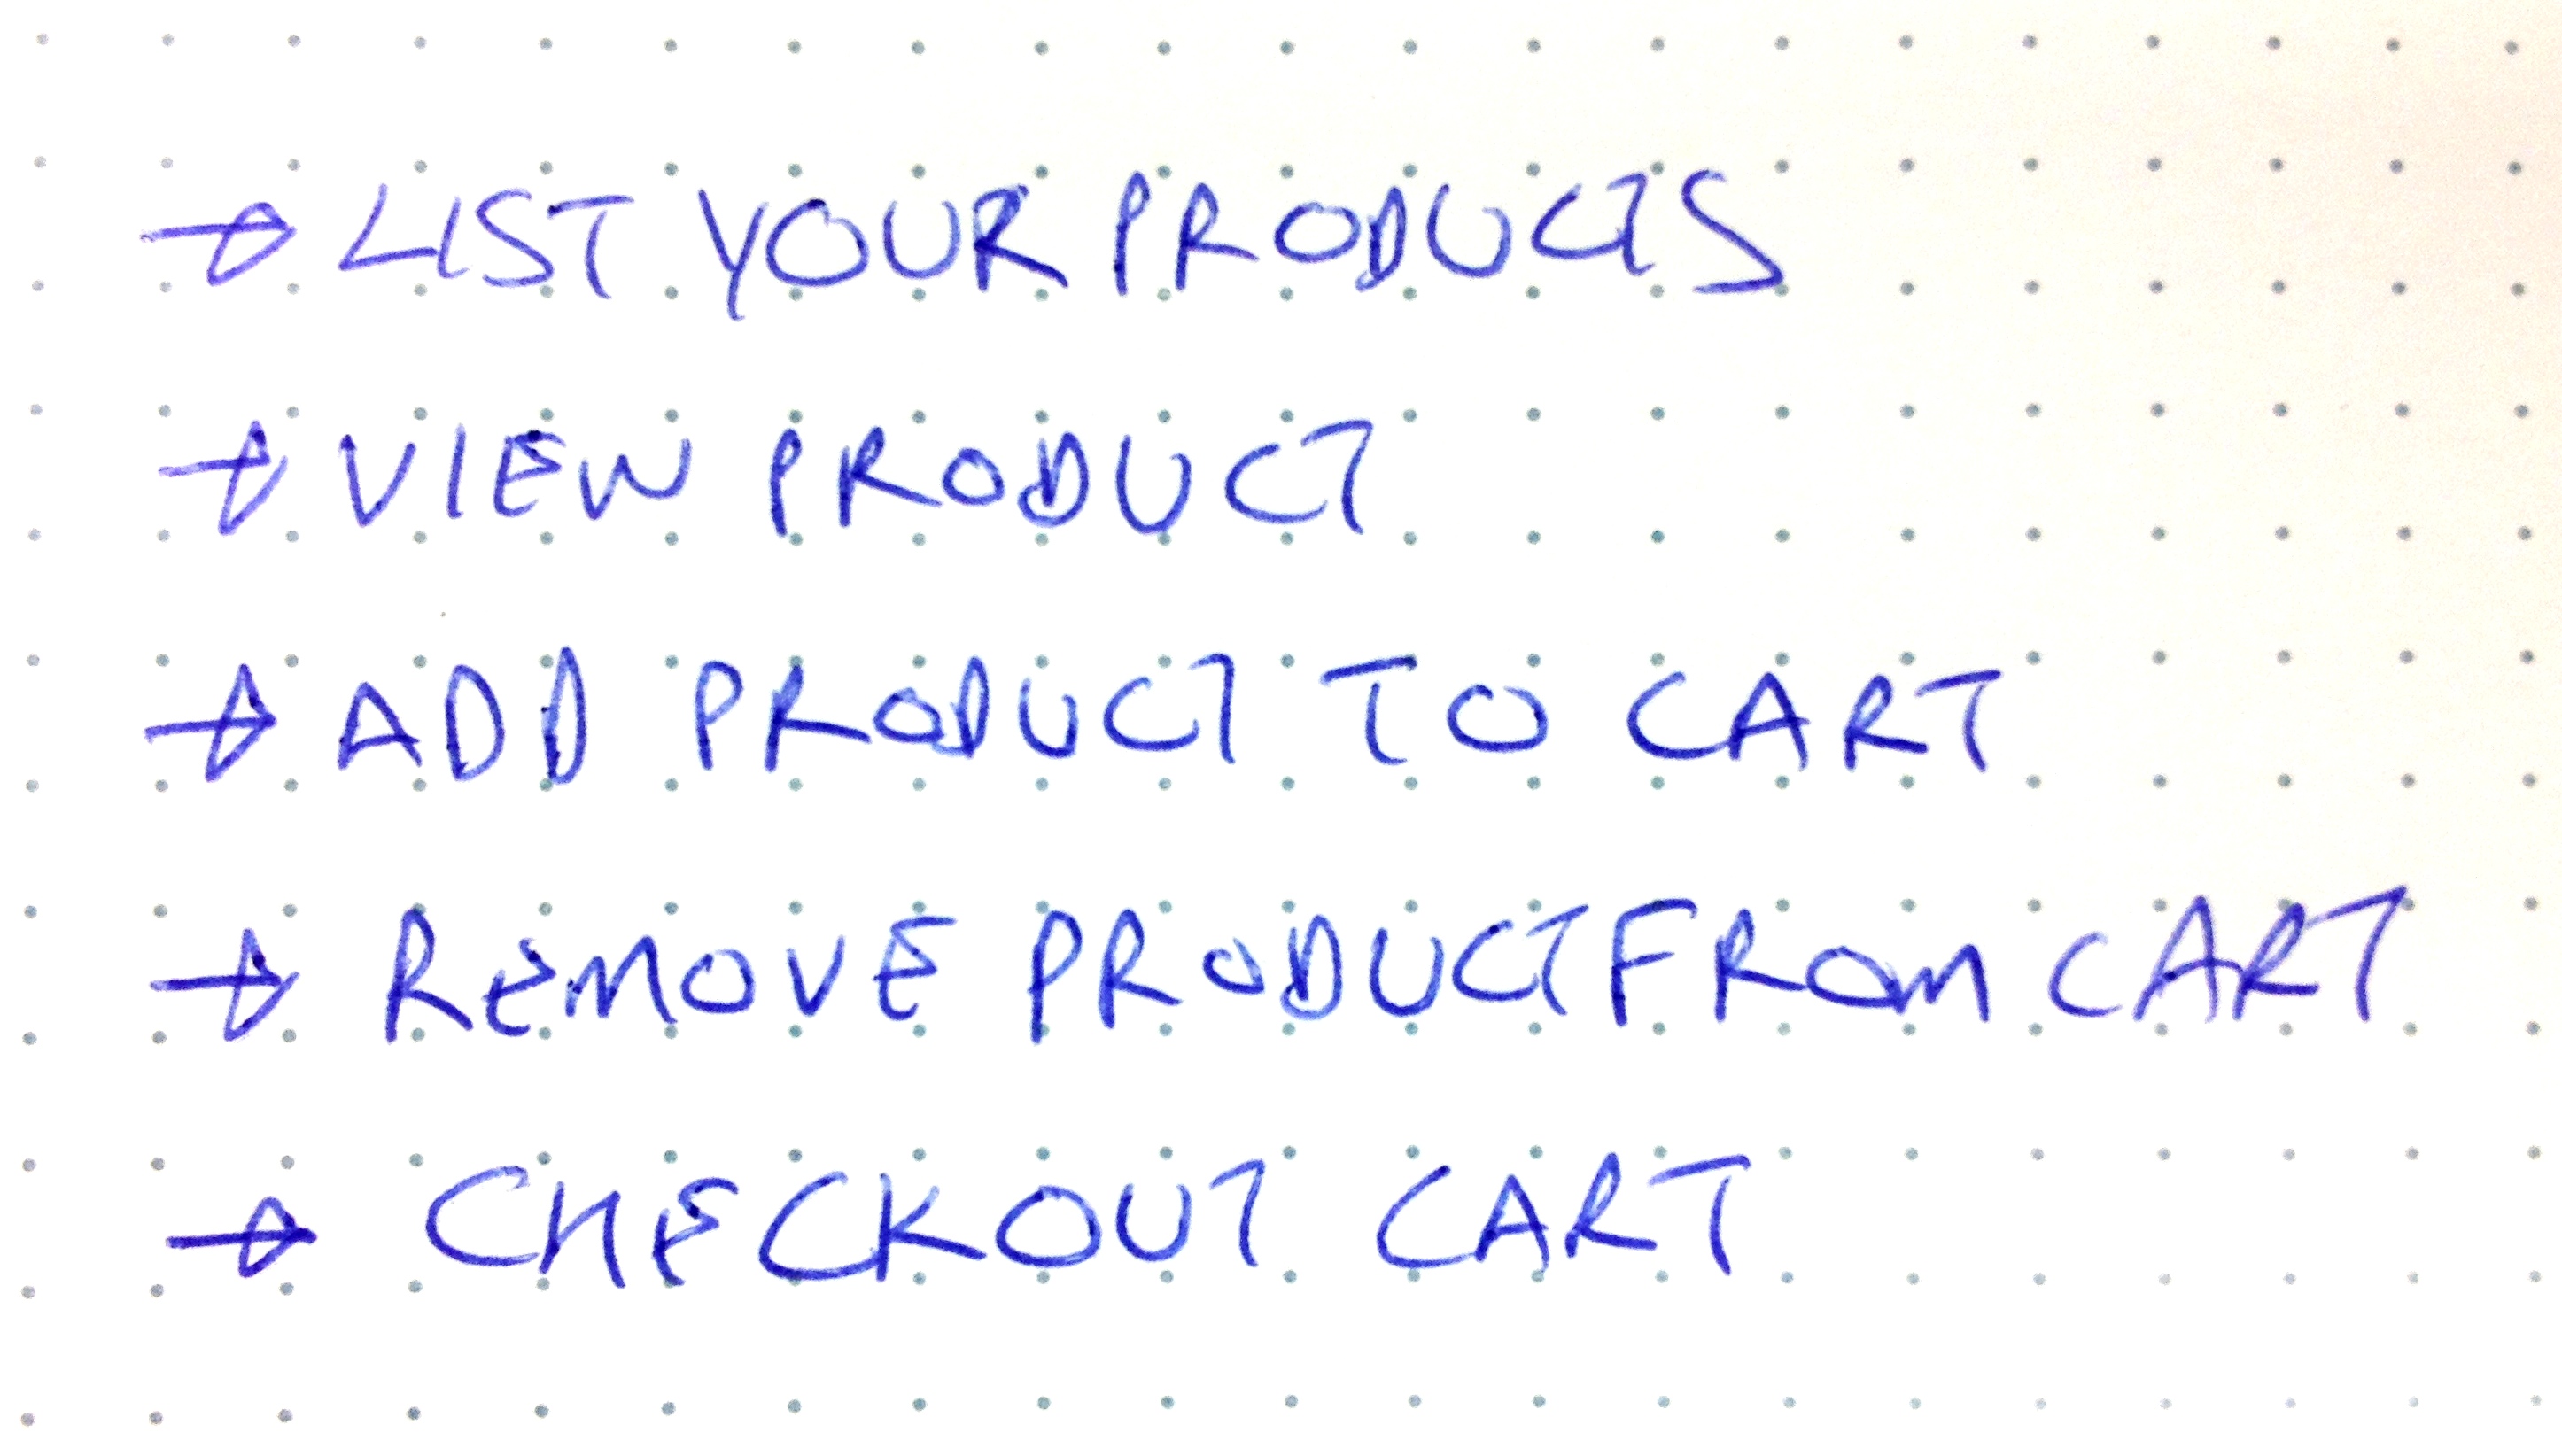 → LIST YOUR PRODUCTS
→ VIEW PRODUCT
→ ADD PRODUCT TO CART
→ REMOVE PRODUCT FROM CART
→ CHECKOUT CART